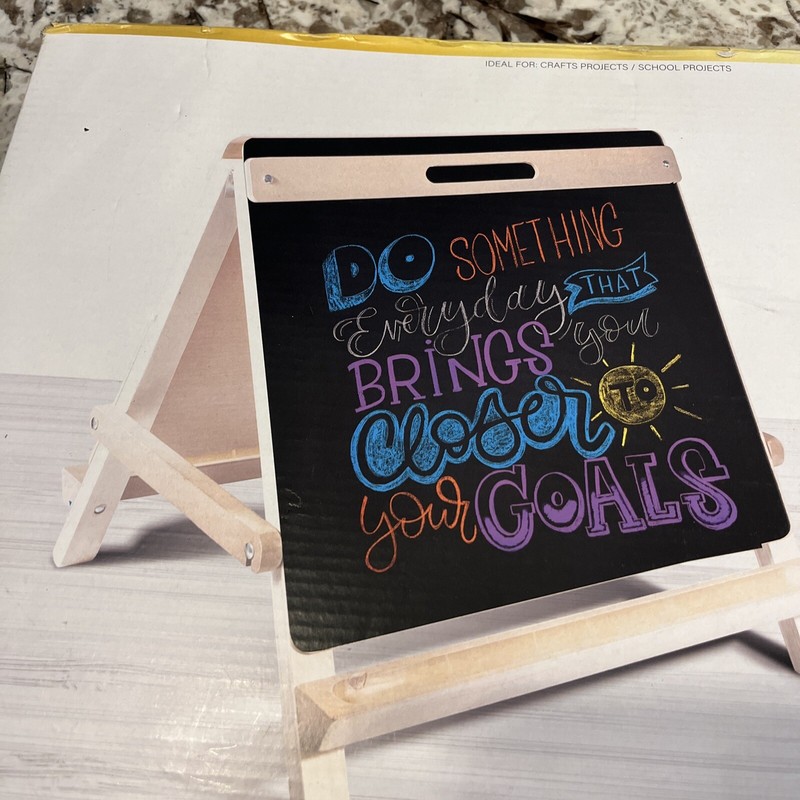 IDEAL FOR: CRAFTS PROJECTS / SCHOOL PROJECTS
DO SOMETHING
Everyday THAT
BRINGS you
Closer TO
your GOALS